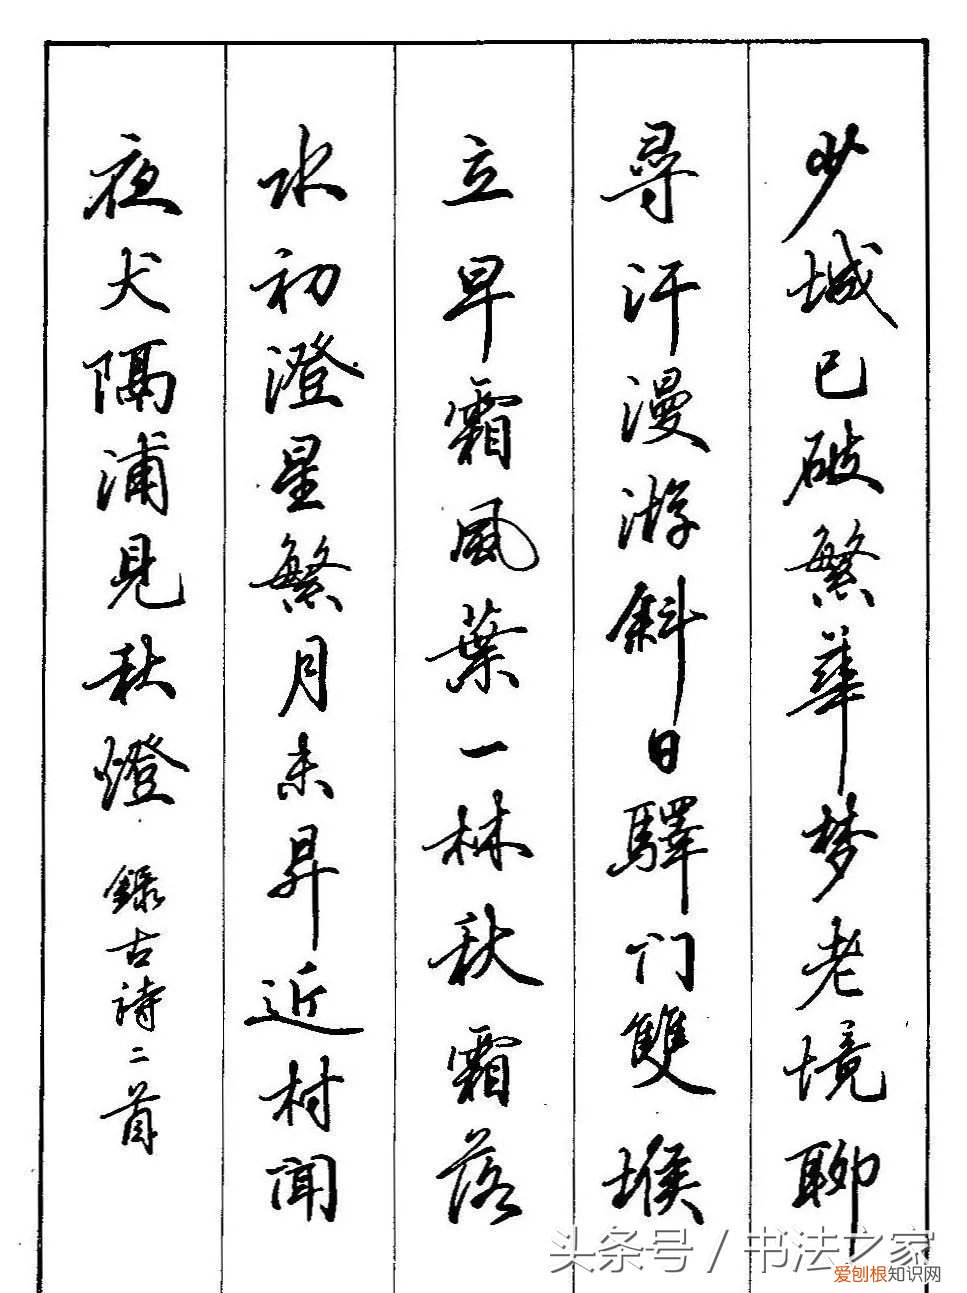 少城已破繁華梦老境聊
尋汗漫游斜日驛门雙堠
立早霜風葉一林秋霜落
水初澄星繁月未昇近村闻
夜犬隔浦見秋燈 錄古诗二首
头条号 / 书法之家
爱刨根知识网